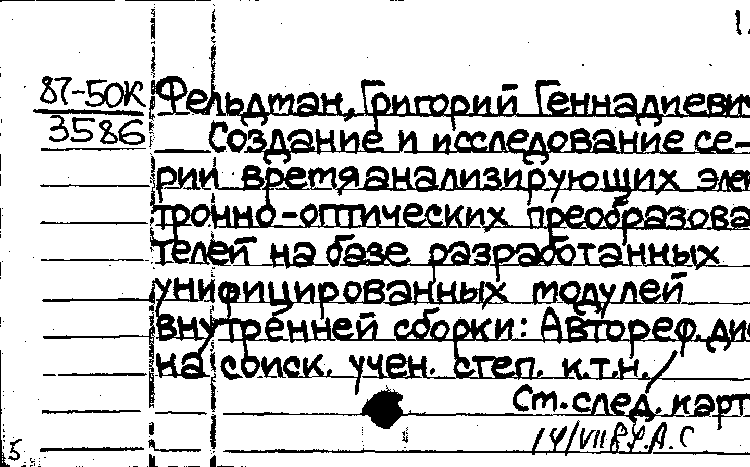 1.
87-50К Фельдман, Григорий Геннадиевич
3586 Создание и исследование се-
рии времяанализирующих элек
тронно-оптических преобразова
телей на базе разработанных
унифицированных модулей
внутренней сборки: Автореф. дис
на соиск. учен. степ. к.т.н.
См. след. карт
5